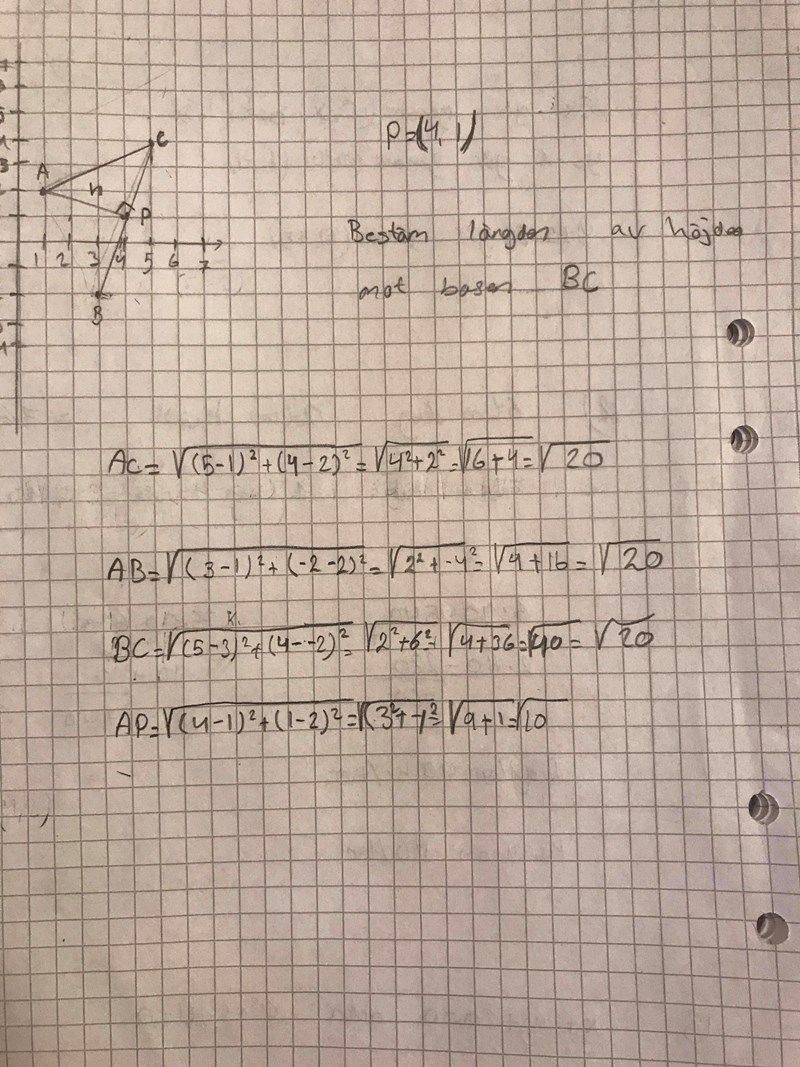 P=(4, 1)
C
A
h
P
1 2 3 4 5 6 7
B
Bestäm längden av höjden
mot basen BC
AC=√(5-1)²+(4-2)²=√4²+2²=√16+4=√20
AB=√(3-1)²+(-2-2)²=√2²+-4²=√4+16=√20
BC=√(5-3)²+(4--2)²=√2²+6²=√4+36=√40=√20
AP=√(4-1)²+(1-2)²=√(3²+-1²=√9+1=√10